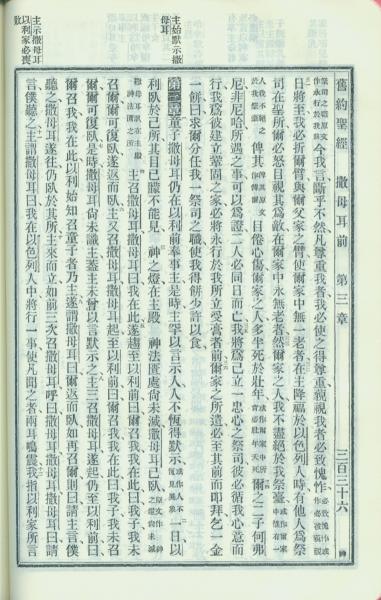 主始默示撒
母耳
主示撒母耳
以利家必喪
敗
舊約聖經　撒母耳前　第三章　三百三十六　神
今我言斷乎不然凡尊重我者我必使之得尊重藐視我者必致愧怍
日將至我必折爾臂與爾父家之臂使爾家中無一老者在主降福於以色列人時有他人爲祭
司在聖所爾必怒目視其爲敵在爾家中永無老者然爾家之人我不盡絕於我祭臺
俾其目倦心傷爾家之人多半死於壯年爾之二子何弗
尼非尼哈所遇之事可以爲證二人必同日而亡我將爲己立一忠心之祭司彼必循我心意而
行我爲彼建立鞏固之家彼將永行於我所立受膏者前爾家之所遺必至其前而叩拜乞一金
一餅曰求爾分任我一祭司之職使我得餅少許以食
第三章童子撒母耳仍在以利前奉事主是時主罕以言示人人不恆得默示一日以
利臥於己所其目已朦不能見神之燈在主殿神法匱處尚未滅撒母耳已臥
主召撒母耳撒母耳曰我在此遂趨至以利前曰爾召我我在此曰我子我未
召爾爾可復臥遂返而臥主又召撒母耳撒母耳起至以利前曰爾召我我在此曰我子我未
爾爾可復臥是時撒母耳尚未識主蓋主未曾以言默示之主三召撒母耳撒母耳遂起仍至以利前曰
爾召我我在此以利始知召童子者乃主遂謂撒母耳曰爾返而臥如再召爾則曰請主言僕
聽之撒母耳遂往仍臥於其所主來而立如前三次召撒母耳呼曰撒母耳撒母耳撒母耳曰請
言僕聽之主謂撒母耳曰我在以色列人中將行一事使凡聞之者兩耳鳴震我指以利家所言